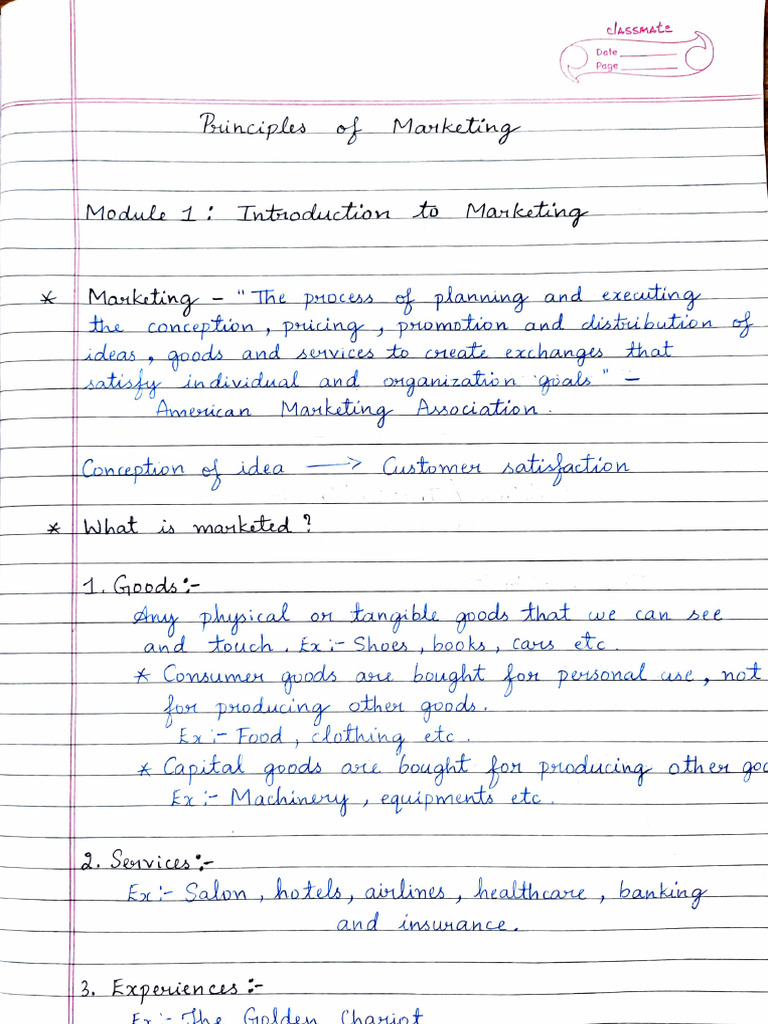 classmate
Date
Page
Principles of Marketing
Module 1 : Introduction to Marketing
* Marketing - "The process of planning and executing
the conception, pricing, promotion and distribution of
ideas, goods and services to create exchanges that
satisfy individual and organization goals" -
American Marketing Association.
Conception of idea → Customer satisfaction
* What is marketed?
1. Goods:-
Any physical or tangible goods that we can see
and touch. Ex:- Shoes, books, cars etc.
* Consumer goods are bought for personal use, not
for producing other goods.
Ex:- Food, clothing etc.
* Capital goods are bought for producing other goo
Ex:- Machinery, equipments etc.
2. Services:-
Ex:- Salon, hotels, airlines, healthcare, banking
and insurance.
3. Experiences:-
Ex:- The Golden Chariot